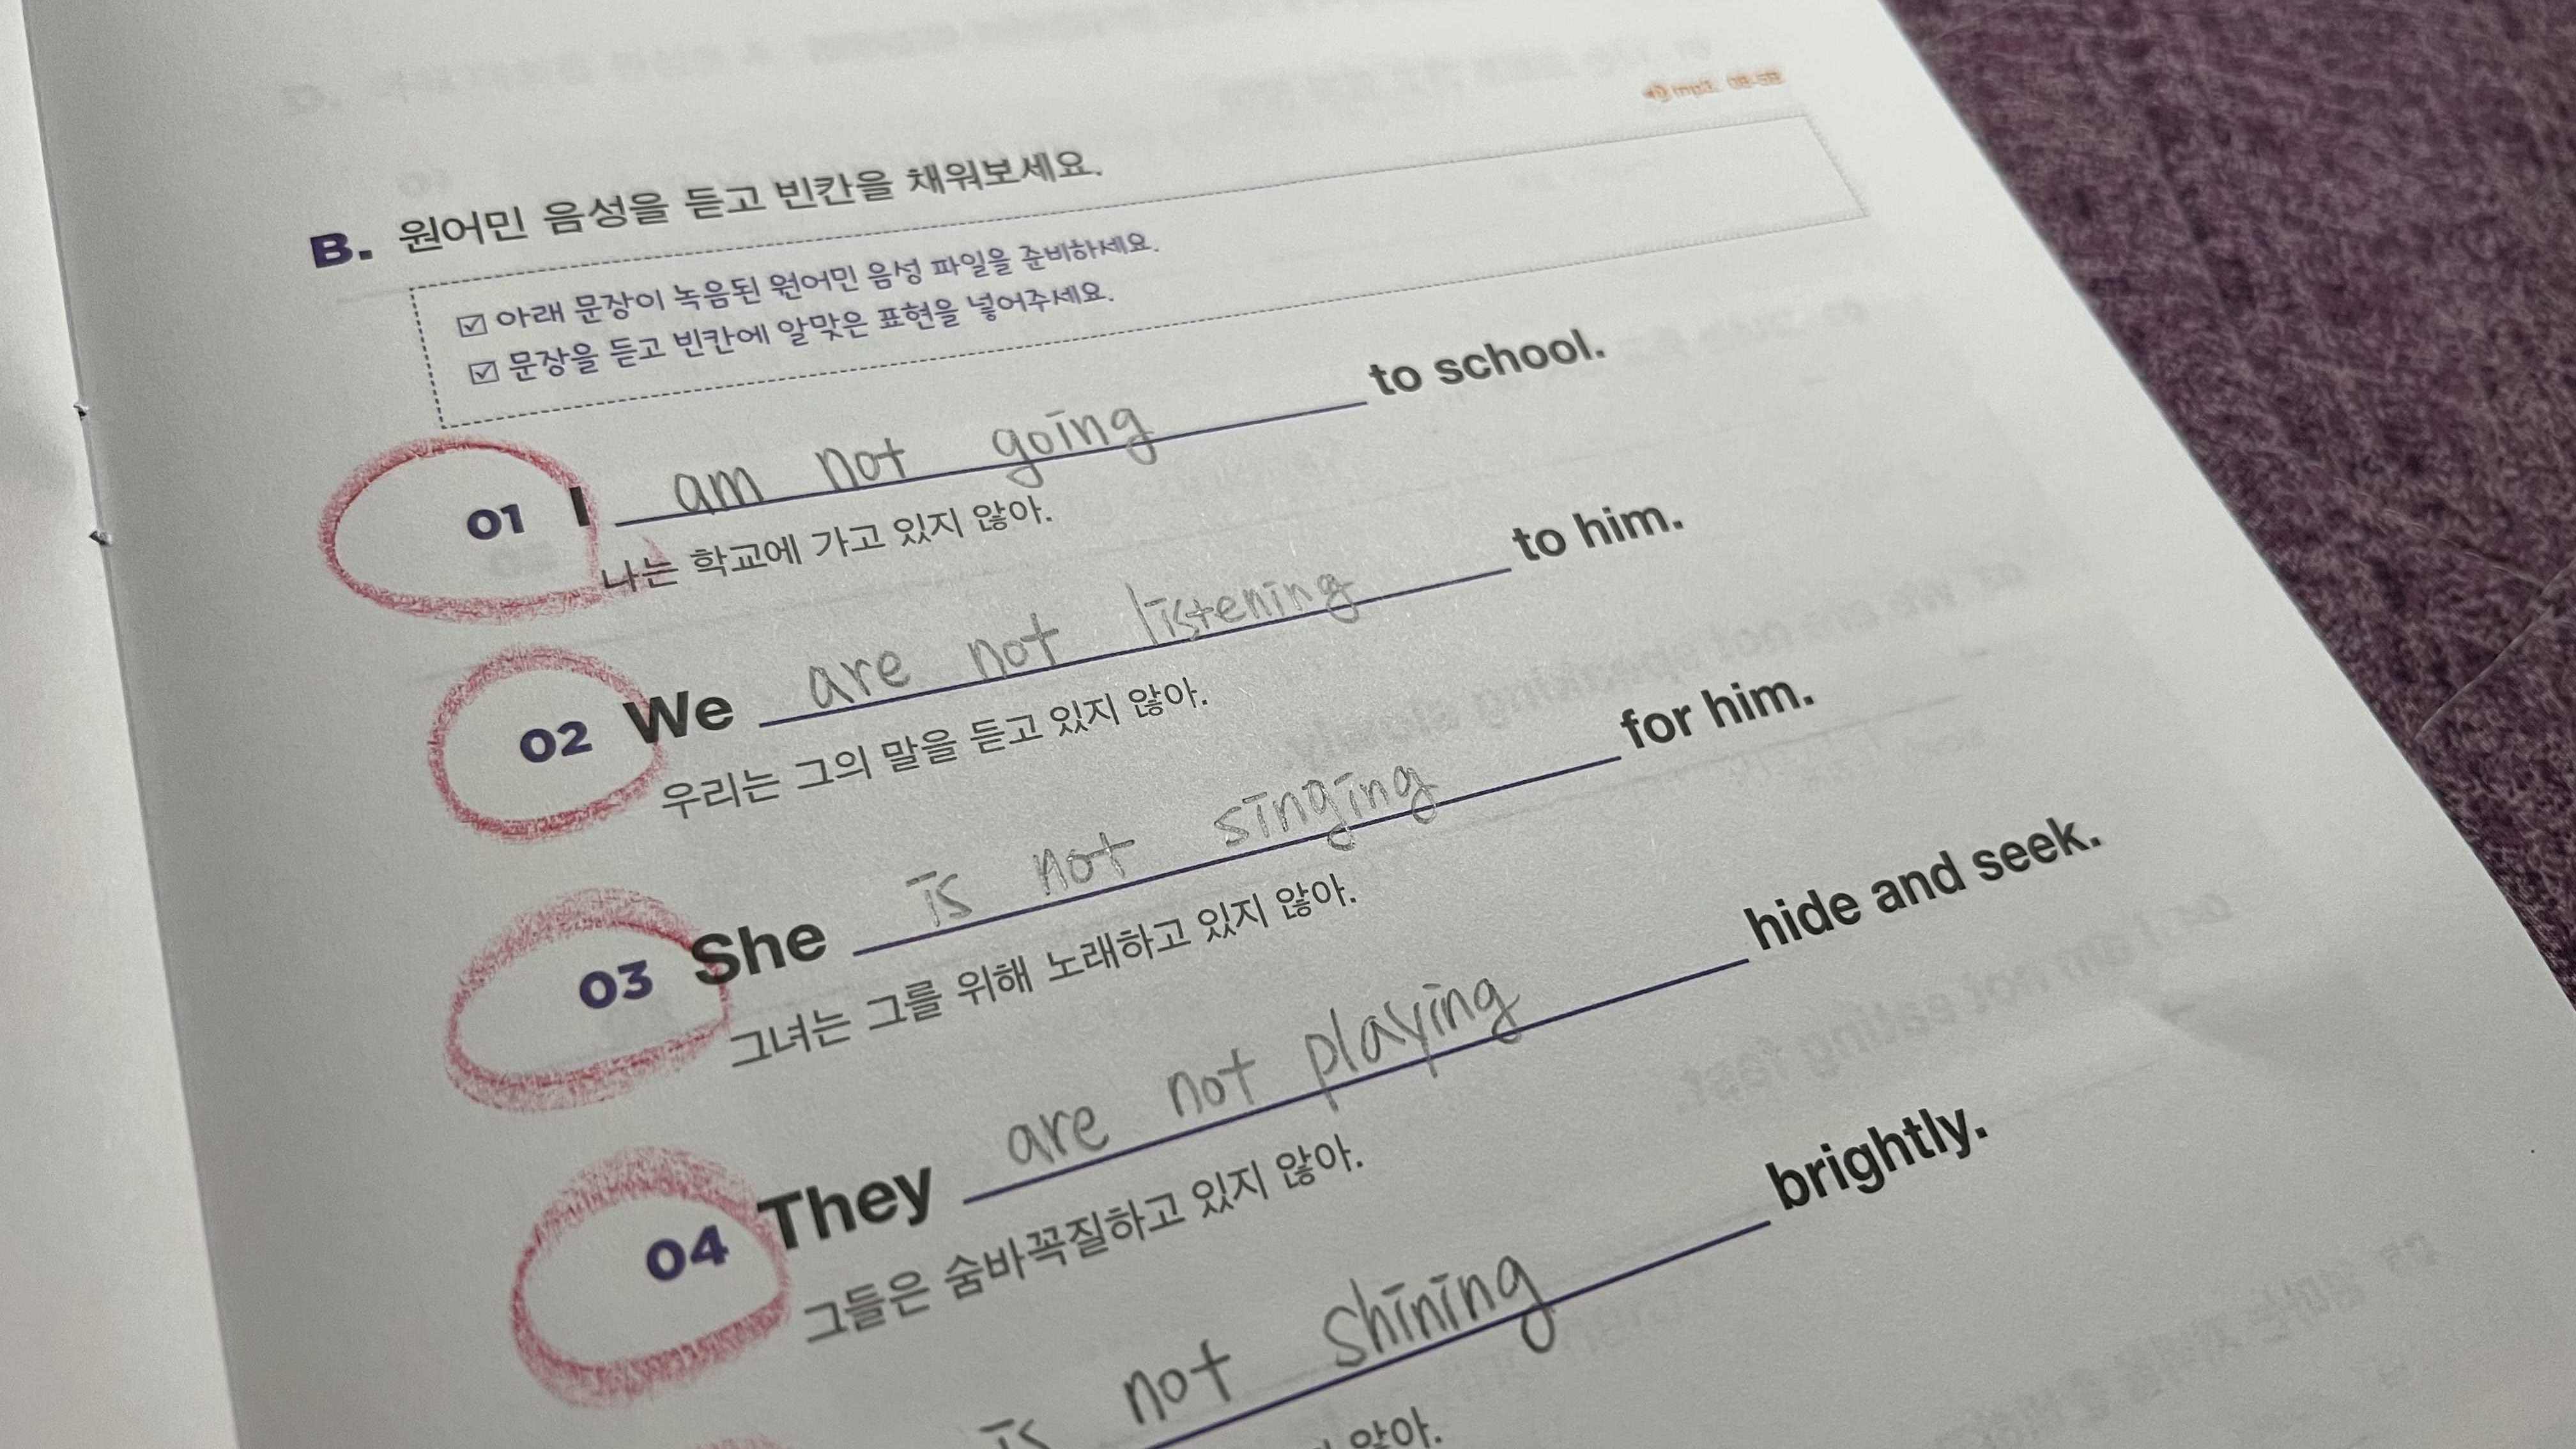 B. 원어민 음성을 듣고 빈칸을 채워보세요.
☑ 아래 문장이 녹음된 원어민 음성 파일을 준비하세요.
☑ 문장을 듣고 빈칸에 알맞은 표현을 넣어주세요.
01 I am not going to school.
나는 학교에 가고 있지 않아.
02 We are not listening to him.
우리는 그의 말을 듣고 있지 않아.
03 She is not singing for him.
그녀는 그를 위해 노래하고 있지 않아.
04 They are not playing hide and seek.
그들은 숨바꼭질하고 있지 않아.
is not shining brightly.
않아.